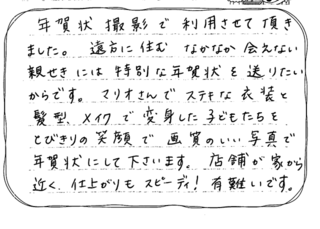 年賀状 撮影で 利用させて頂き
ました。 遠方に住む なかなか 会えない
親せきには 特別な年賀状を 送りたい
からです。 マリオさんで ステキな 衣装と
髪型、メイクで 変身した子どもたちを
とびきりの 笑顔で 画質のいい 写真で
年賀状にして下さいます。 店舗が 家から
近く、仕上がりも スピーディ! 有難いです。